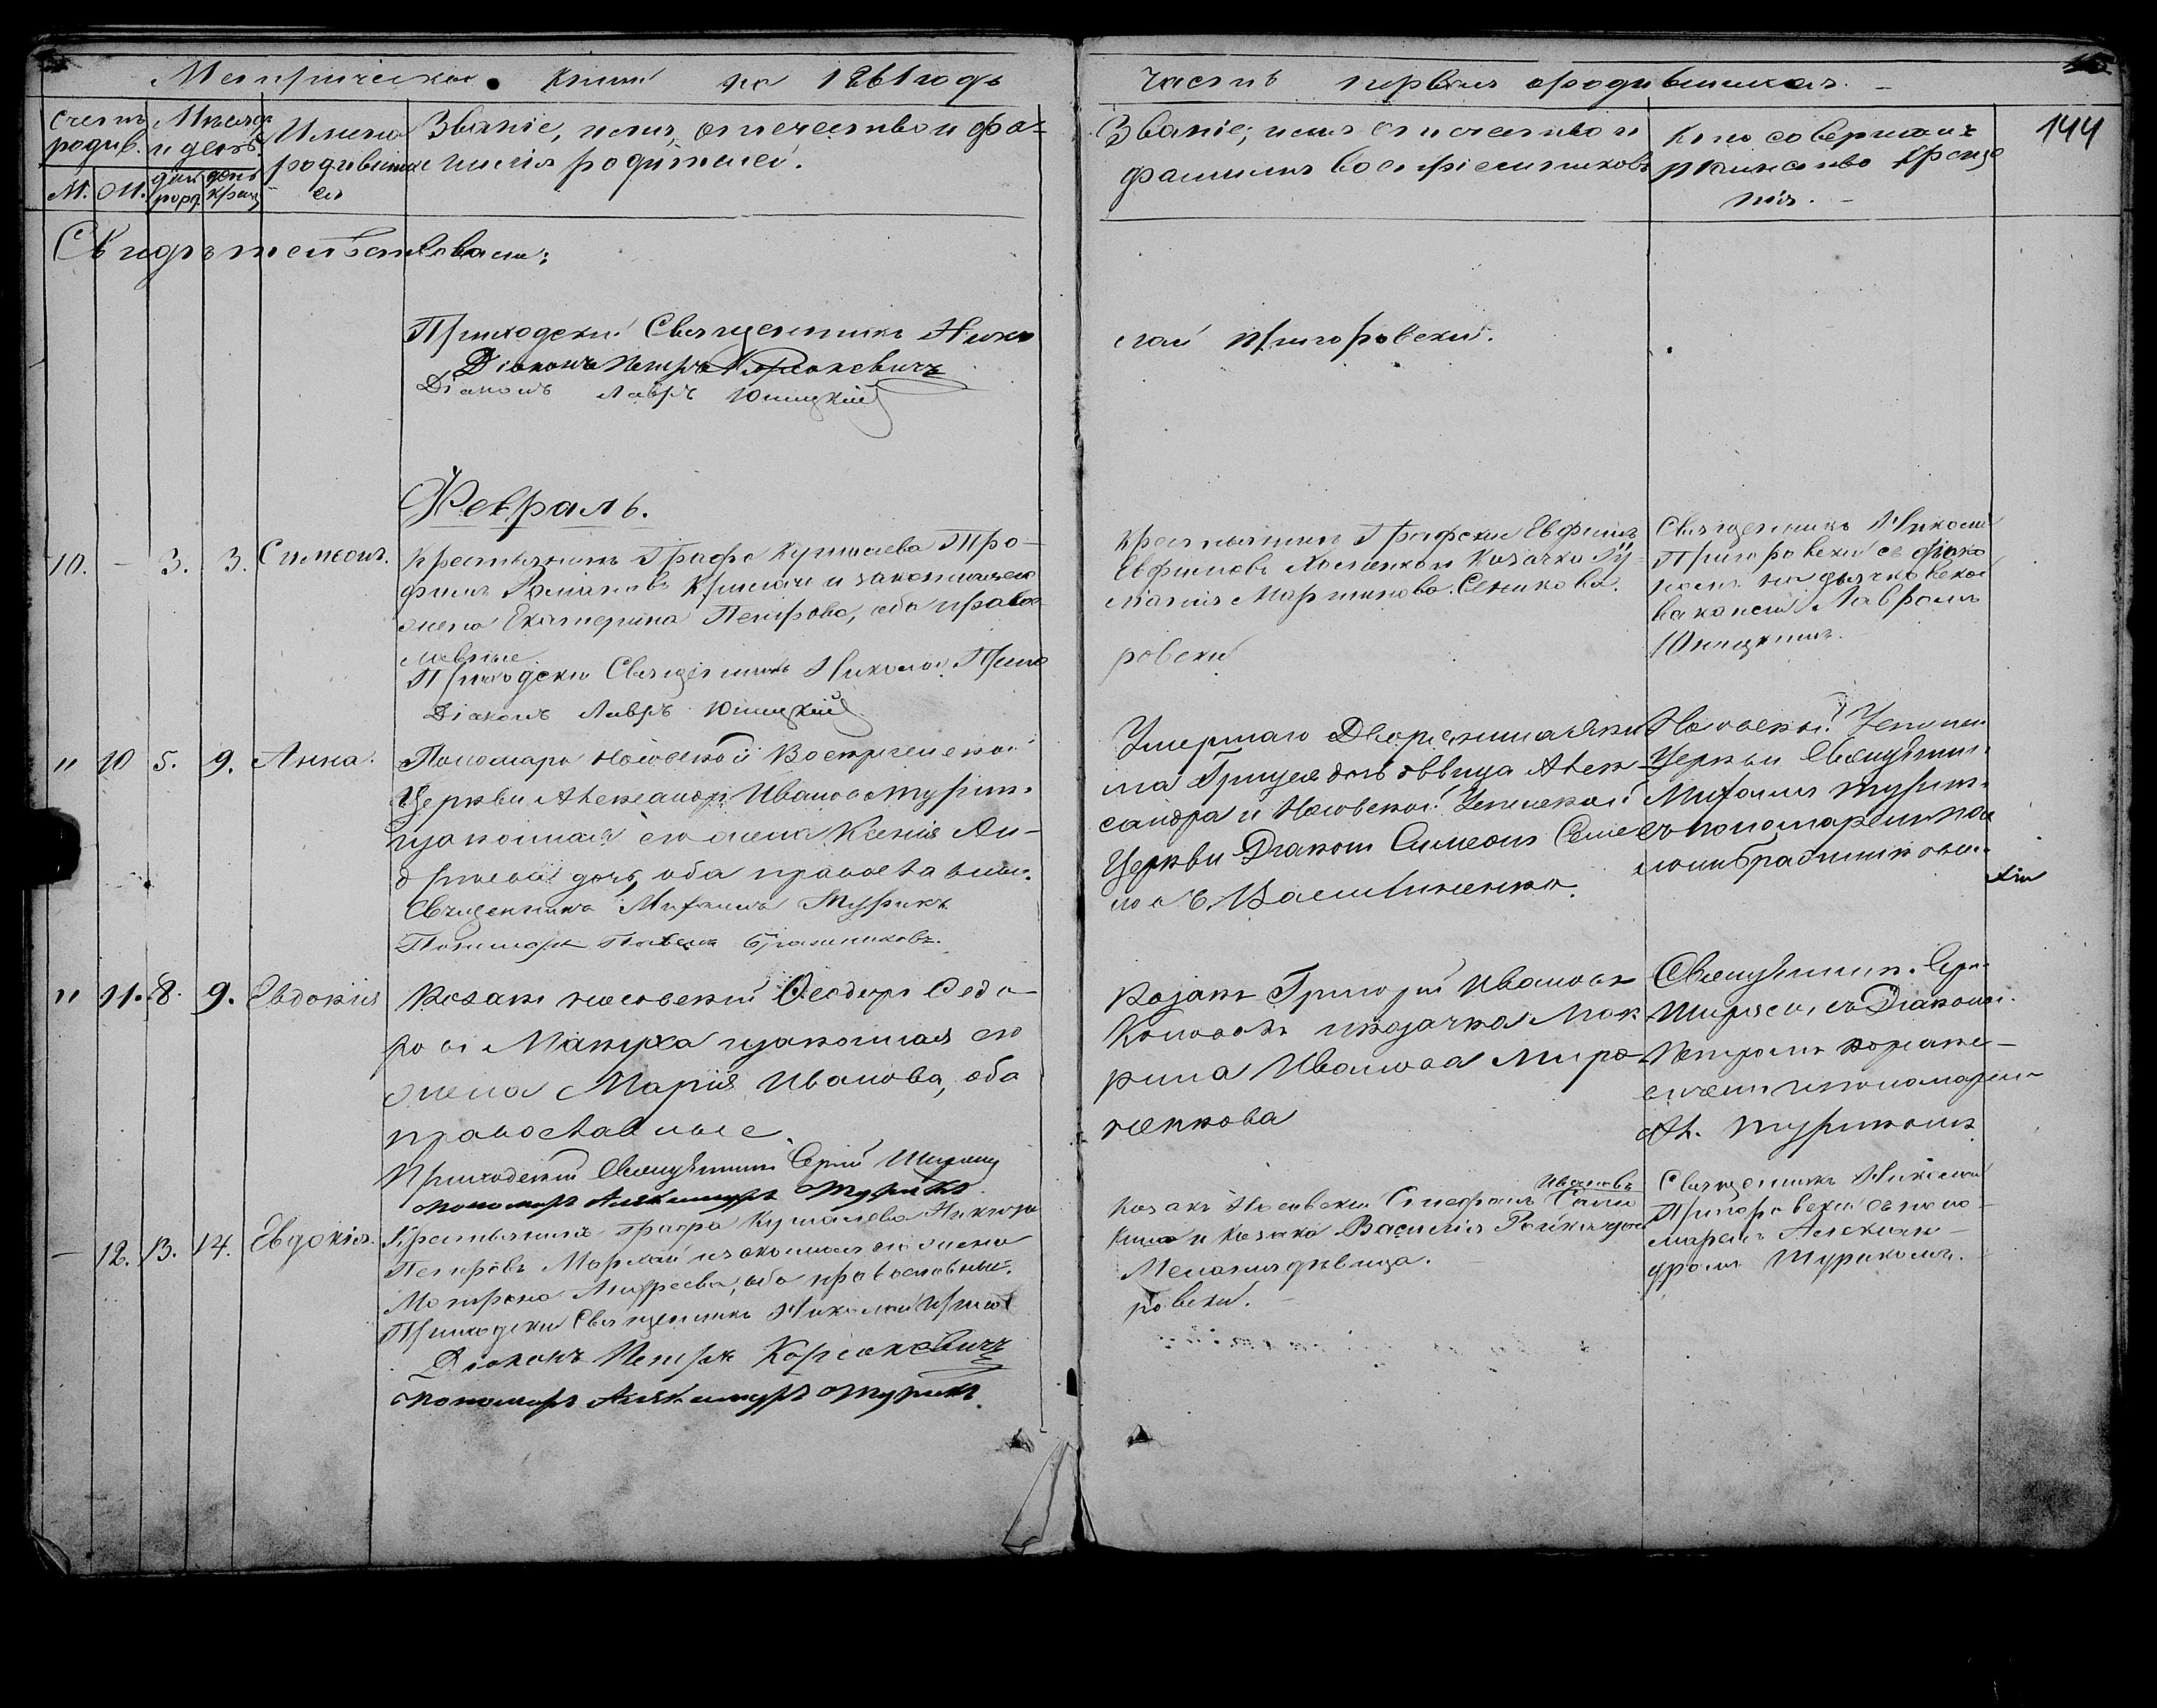 Метрической книги на 1861 годъ
Часть первая о родившихся.
144
Счетъ родив.
М. Ж.
Мѣсяцъ и день.
день рожд. день крещ.
Имена родившихся
Званіе, имя, отечество и фа-
милія родителей.
Званіе, имя отечество и
фамилія воспріемниковъ
Кто совершалъ
таинство креще
нія.
Свидѣтельствовали:
Приходскій Священникъ Нико
лай Пригоровскій.
Діаконъ Петръ Корсакевичъ
Діаконъ Лавръ Юницкій
Февраль.
10. - 3. 3. Симеонъ.
Крестьянинъ Графа Кушелева Тро-
фимъ Романовъ и законная его
жена Екатерина Петрова, оба право
славные
Приходскій Священникъ Николай Приго
ровскій
Діаконъ Лавръ Юницкій
Крестьянинъ Графскій Евфимъ
Евфимовъ и Козачка
Мартинова
Священникъ Николай
Пригоровскій съ діако
номъ на дьячковской
вакансіи Лавромъ
Юницкимъ.
" 10 5. 9. Анна.
Пономарь Носовской Воскресенской
Церкви Александръ Ивановъ Турикъ
и законная его жена Ксенія Ан-
дреева дочь, оба православны.
Священникъ Михаилъ Турикъ
Пономарь Павелъ Бражниковъ.
Умершаго Дворянина
дочь дѣвица Алек
сандра и Носовской Успенской
Церкви Діаконъ Симеонъ Семе
новъ Василиненко.
Носовской Успенской
Церкви Священникъ
Михаилъ Турикъ
съ пономаремъ Пав
ломъ Бражниковымъ
" 11. 8. 9. Евдокія
Козакъ носовскій Ѳеодоръ Ѳедо-
ровъ Макуха и законная его
жена Марія Иванова, оба
православные.
Приходскій Священникъ
Пономарь Александръ Турикъ
Козакъ Григорій Ивановъ
Коновалъ и козачка Мак
рина Иванова Миро-
ненкова
Священникъ
съ Діакономъ
Петромъ Корсаке-
вичемъ и пономаремъ
Ал. Турикомъ
- 12. 13. 14. Евдокія.
Крестьянинъ Графа Кушелева Никифоръ
Петровъ и законная его жена
Матрона Андреева, оба православные.
Приходскій Священникъ Николай Приго
ровскій.
Діаконъ Петръ Корсакевичъ
Пономарь Александръ Турикъ
Козакъ Носовскій Стефанъ Ивановъ
и Козака Василія дочь
Меланія дѣвица.
Священникъ Николай
Пригоровскій съ поно-
маремъ Алексан-
дромъ Турикомъ.